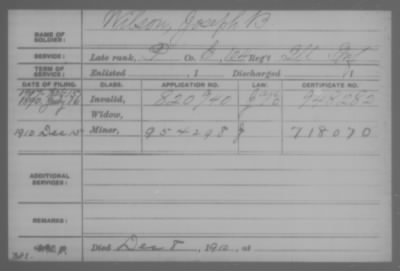 Wilson, Joseph B
NAME OF SOLDIER:
SERVICE: Late rank, P Co. E, Reg't Ill Inf
TERM OF SERVICE: Enlisted , 1 Discharged , 1
DATE OF FILING. CLASS. APPLICATION NO. LAW. CERTIFICATE NO.
1890 July 26 Invalid, 820940 948252
Widow,
1910 Dec 15 Minor, 954298 718070
ADDITIONAL SERVICES:
REMARKS:
Died Dec 8, 1910, at